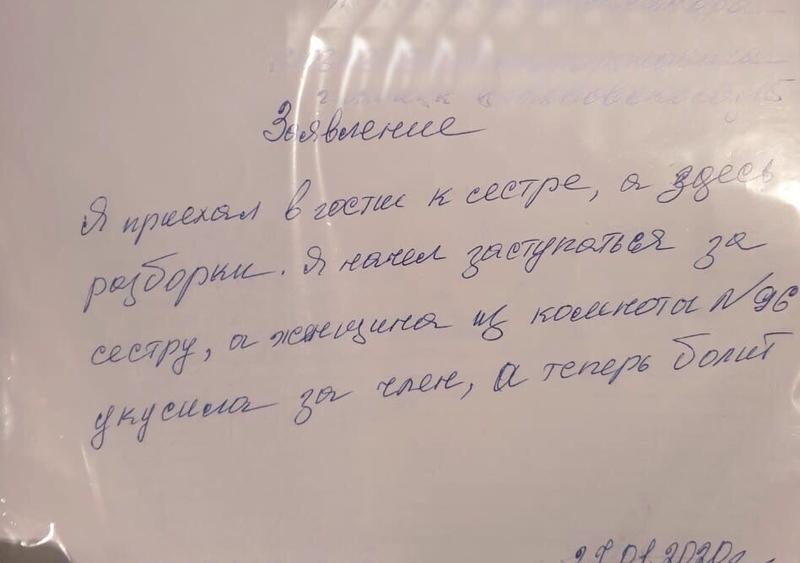 Заявление
Я приехал в гости к сестре, а здесь
разборки. Я начел заступаться за
сестру, а женщина из комноты №96
укусила за член, а теперь болит
27.01.2020г.